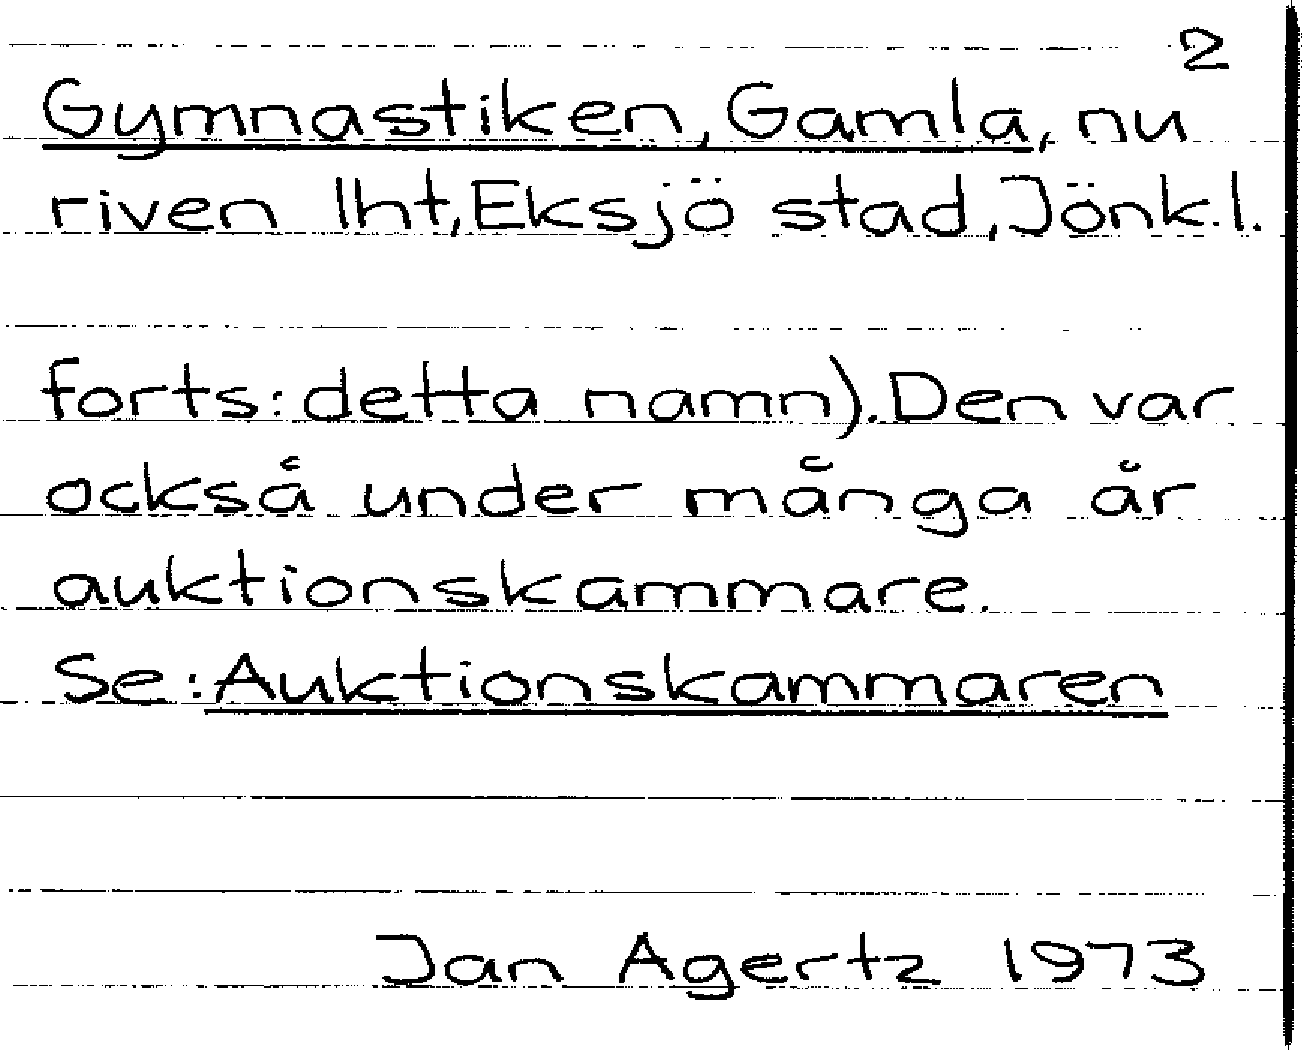 2
Gymnastiken, Gamla, nu
riven lht, Eksjö stad, Jönk.l.
forts: detta namn). Den var
också under många år
auktionskammare.
Se: Auktionskammaren
Jan Agertz 1973